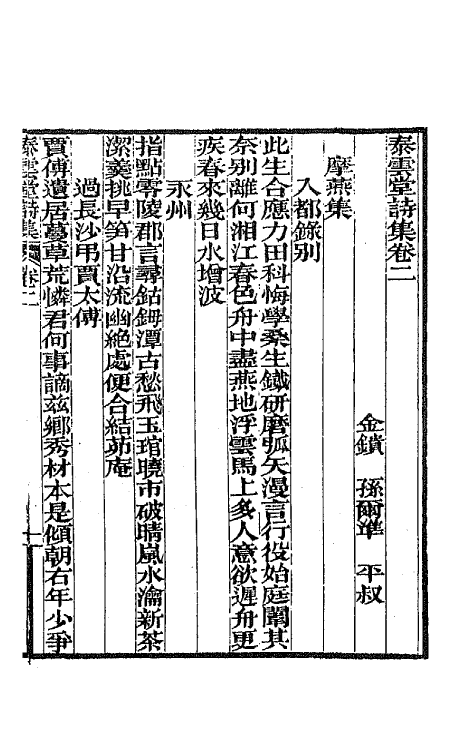 泰雲堂詩集卷二
金鎖　孫爾準　平叔
摩燕集
入都錄别
此生合應力田科悔學桑生鐵硏磨弧矢漫言行役始庭闈其
奈别離何湘江春色舟中盡燕地浮雲馬上多人意欲遲舟更
疾春來幾日水增波
永州
指點零陵郡言尋鈷鉧潭古愁飛玉琯曉市破晴嵐水瀹新茶
潔羹挑早筍甘沿流幽絶處便合結茆庵
過長沙弔賈太傅
賈傅遺居蔓草荒憐君何事謫兹鄉秀材本是傾朝右年少爭
泰雲堂詩集　卷二　一